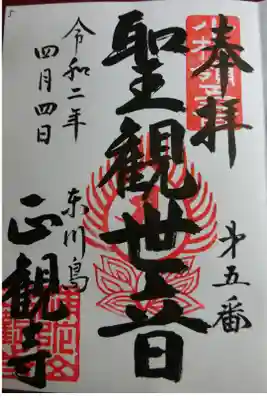 奉拝
第五番
聖観世音
東川島
正観寺
令和二年
四月四日
5